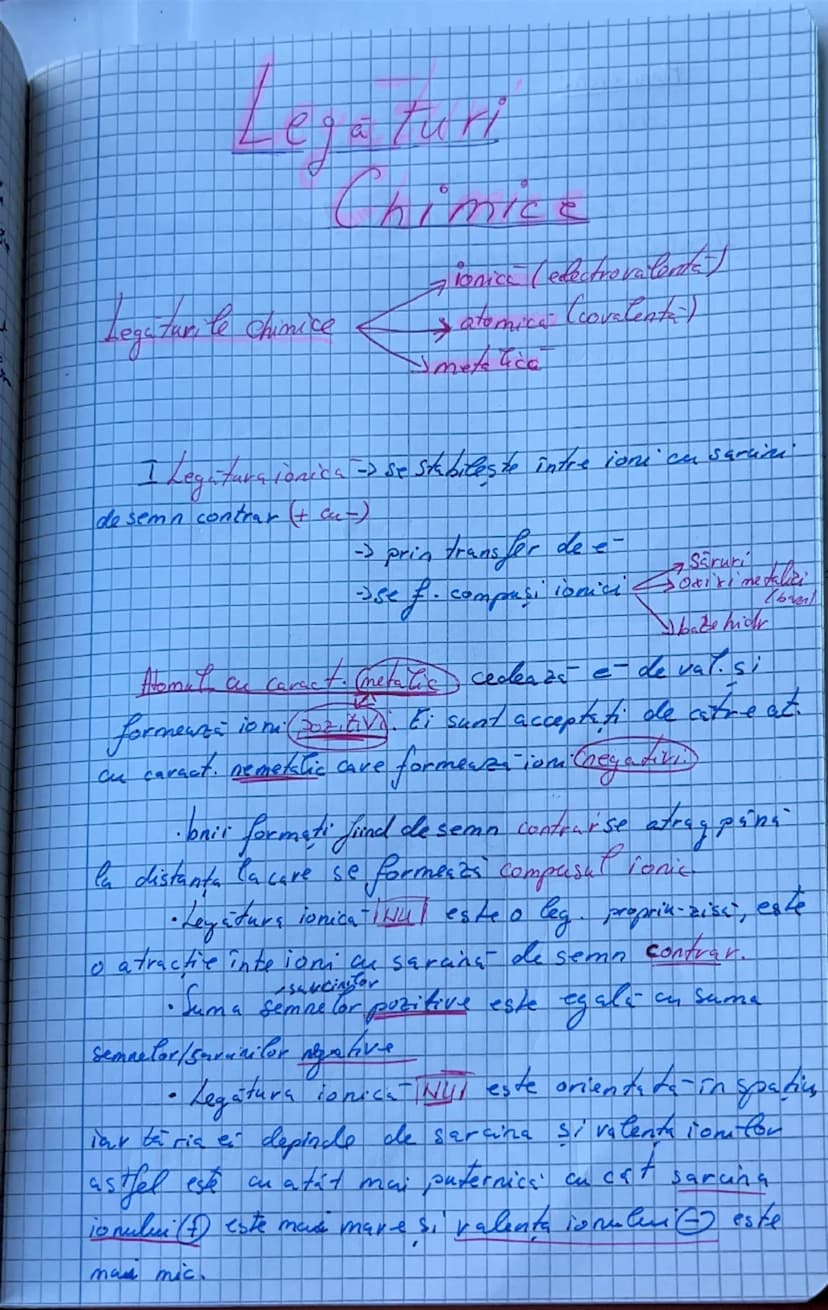 Legături
Chimice
Legăturile chimice → ionică (electrovalentă)
→ atomică (covalentă)
→ metalică
I Legătura ionică → se stabilește între ioni cu sarcini
de semn contrar (+ cu -)
→ prin transfer de e⁻
→ se f. compuși ionici → Săruri
→ oxizi metalici
(bazici)
→ baze hidr
Atomul cu caract. metalic cedează e⁻ de val. și
formează ioni pozitivi. Ei sunt acceptați de către at.
cu caract. nemetalic care formează ioni negativi.
• Ionii formați fiind de semn contrar se atrag până
la distanța la care se formează compusul ionic
• Legătura ionică NU este o leg. propriu-zisă, este
o atracție inte ioni cu sarcină de semn contrar.
sarcinilor
• Suma semnelor pozitive este egală cu suma
semnelor/sarcinilor negative
• Legătura ionică NU este orientată în spațiu
iar tăria ei depinde de sarcina și valența ionilor
astfel este cu atât mai puternică cu cât sarcina
ionului (+) este mai mare și valența ionului (-) este
mai mic.